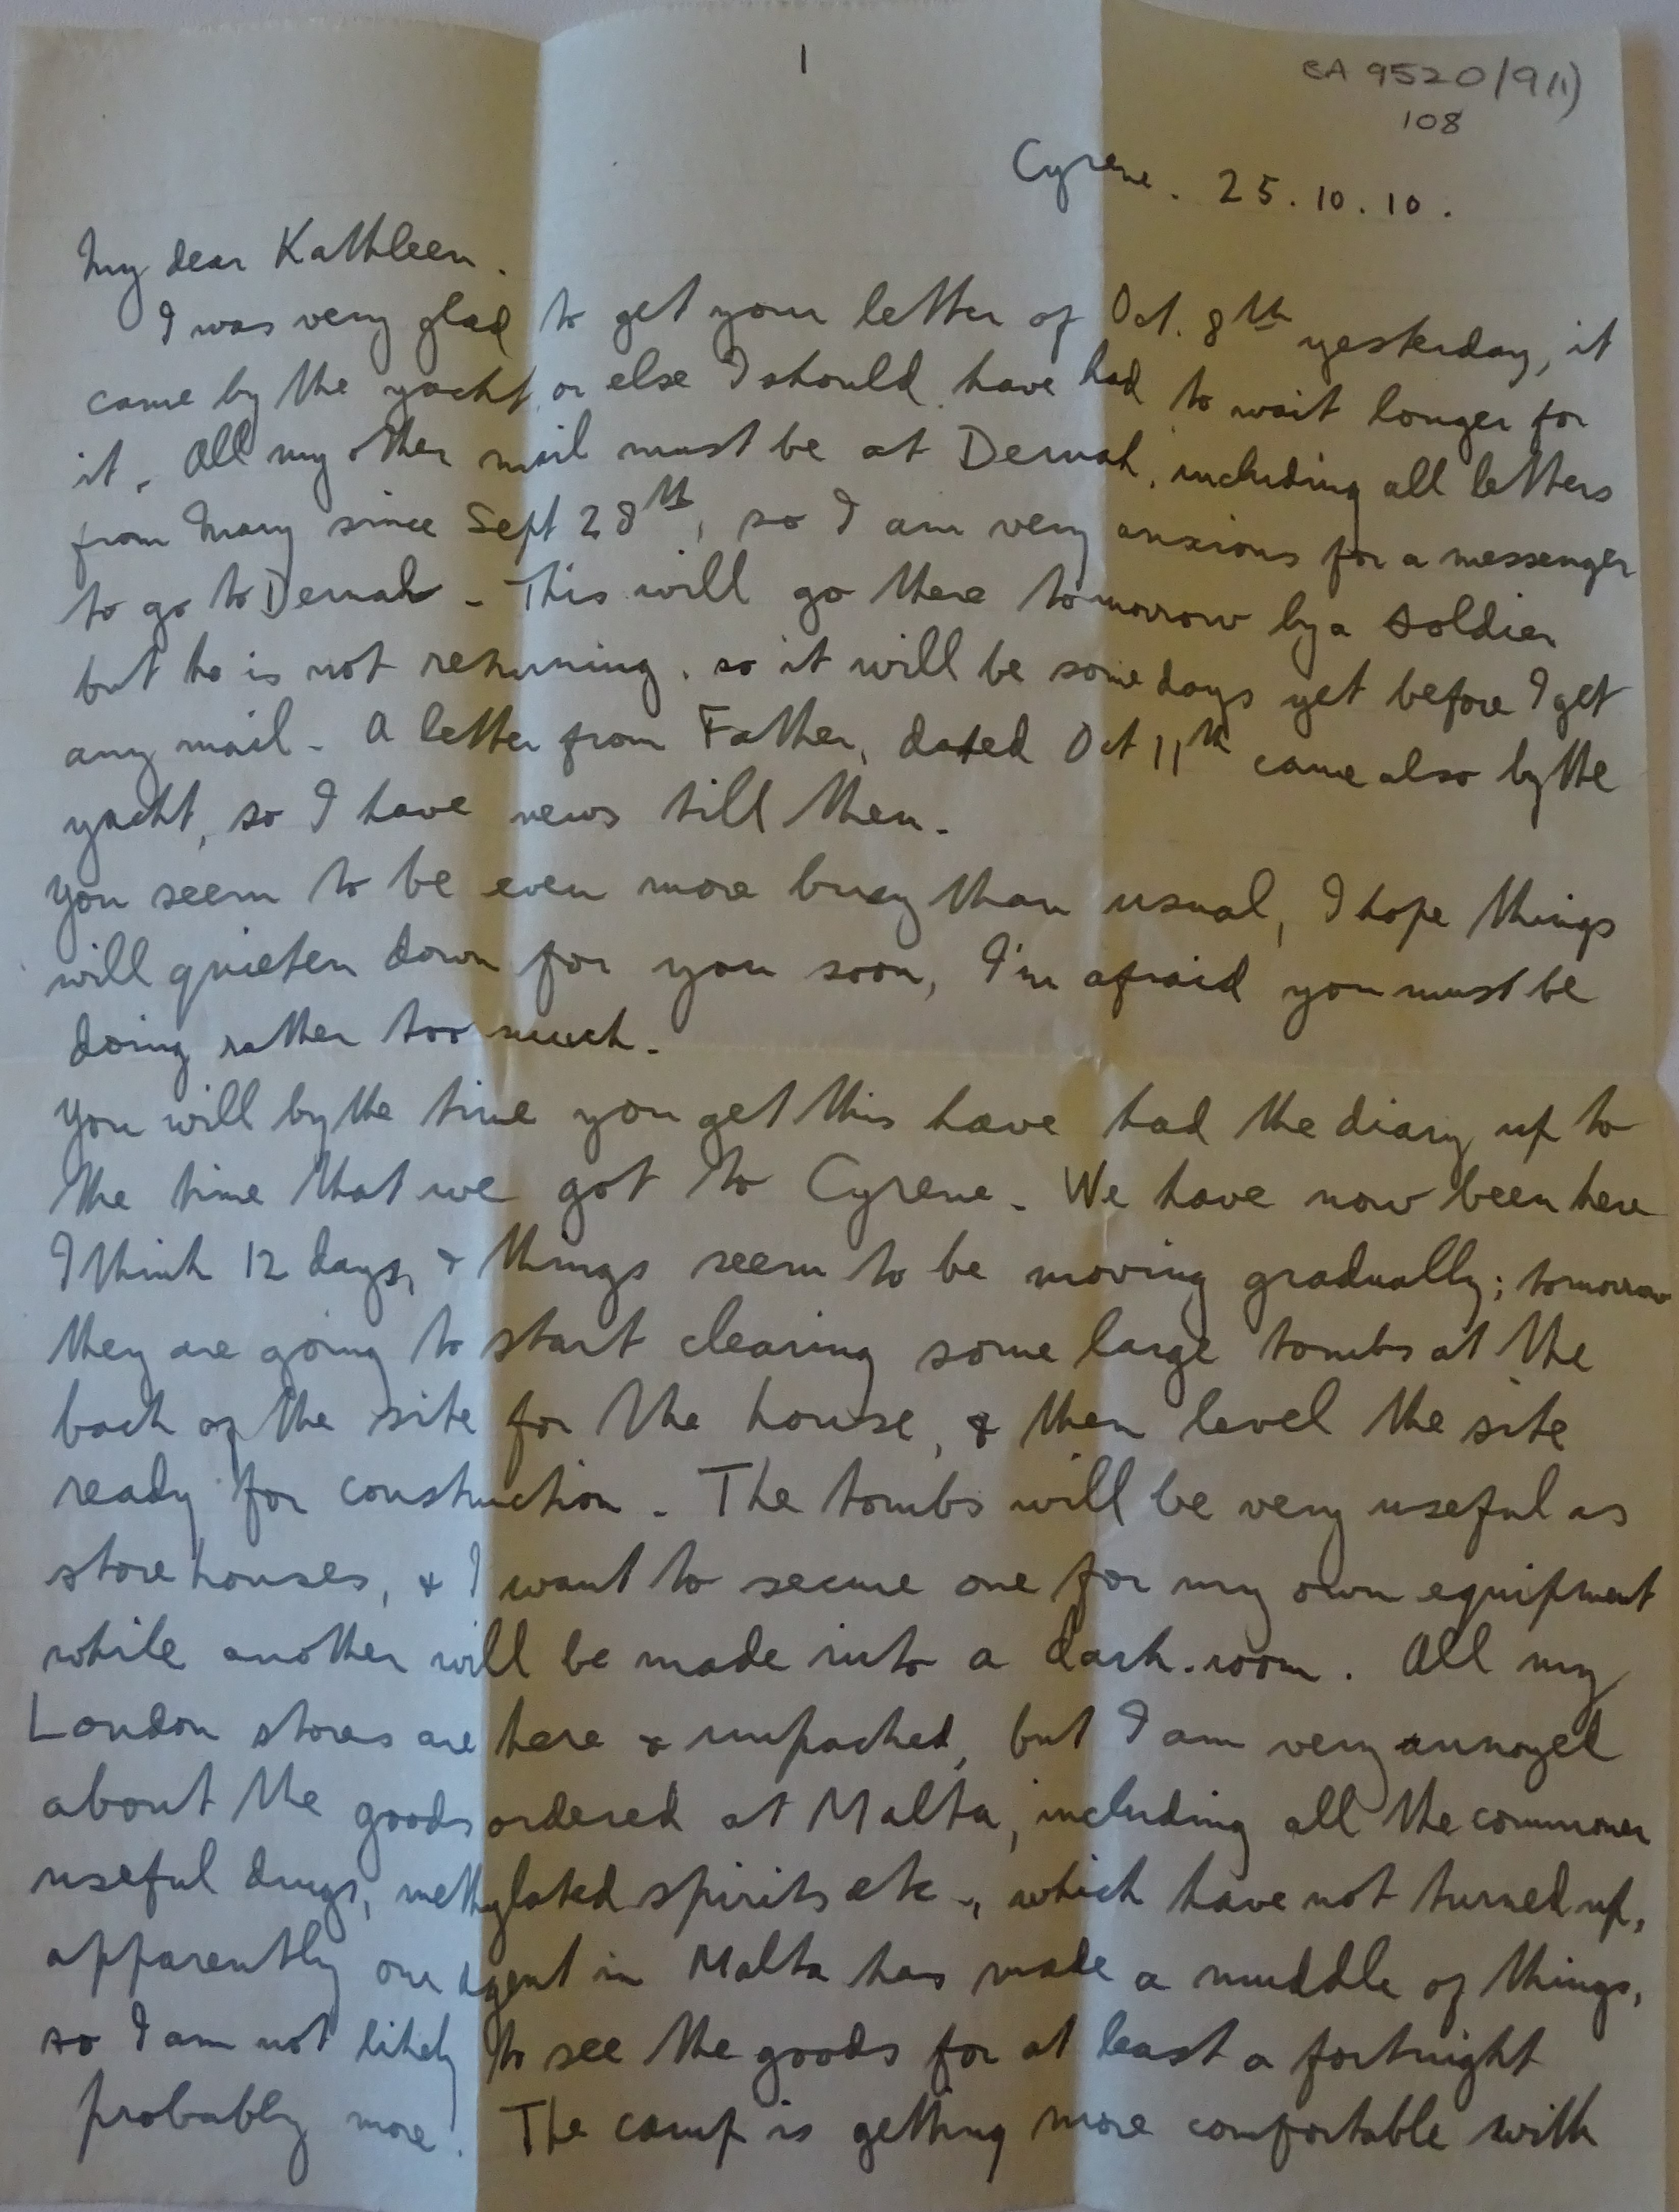 1
CA 9520/9(1)
108
Cyrene. 25.10.10.
My dear Kathleen.
I was very glad to get your letter of Oct. 8th yesterday, it
came by the yacht, or else I should have had to wait longer for
it. All my other mail must be at Dernah, including all letters
from Mary since Sept 28th, so I am very anxious for a messenger
to go to Dernah - This will go there tomorrow by a soldier
but he is not returning, so it will be some days yet before I get
any mail - A letter from Father, dated Oct 11th came also by the
yacht, so I have news till then.
You seem to be even more busy than usual, I hope things
will quieten down for you soon, I'm afraid you must be
doing rather too much.
You will by the time you get this have had the diary up to
the time that we got to Cyrene. We have now been here
I think 12 days, & things seem to be moving gradually; tomorrow
they are going to start clearing some large tombs at the
back of the site for the house, & then level the site
ready for construction. The tombs will be very useful as
storehouses, & I want to secure one for my own equipment
while another will be made into a dark-room. All my
London stores are here & unpacked, but I am very annoyed
about the goods ordered at Malta, including all the commoner
useful drugs, methylated spirits etc., which have not turned up,
apparently our agent in Malta has made a muddle of things,
so I am not likely to see the goods for at least a fortnight
probably more! The camp is getting more comfortable with